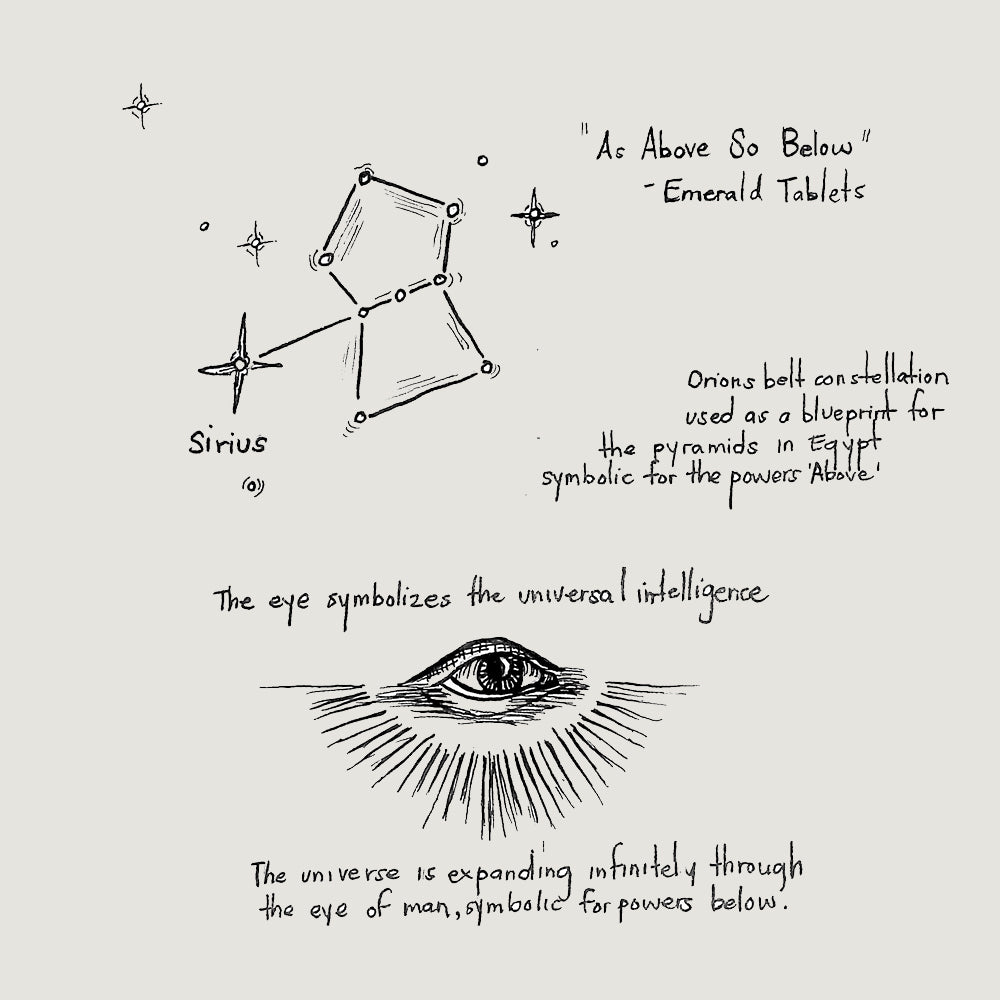 "As Above So Below"
- Emerald Tablets
Sirius
Orions belt constellation
used as a blueprint for
the pyramids in Egypt
symbolic for the powers 'Above'
The eye symbolizes the universal intelligence
The universe is expanding infinitely through
the eye of man, symbolic for powers below.